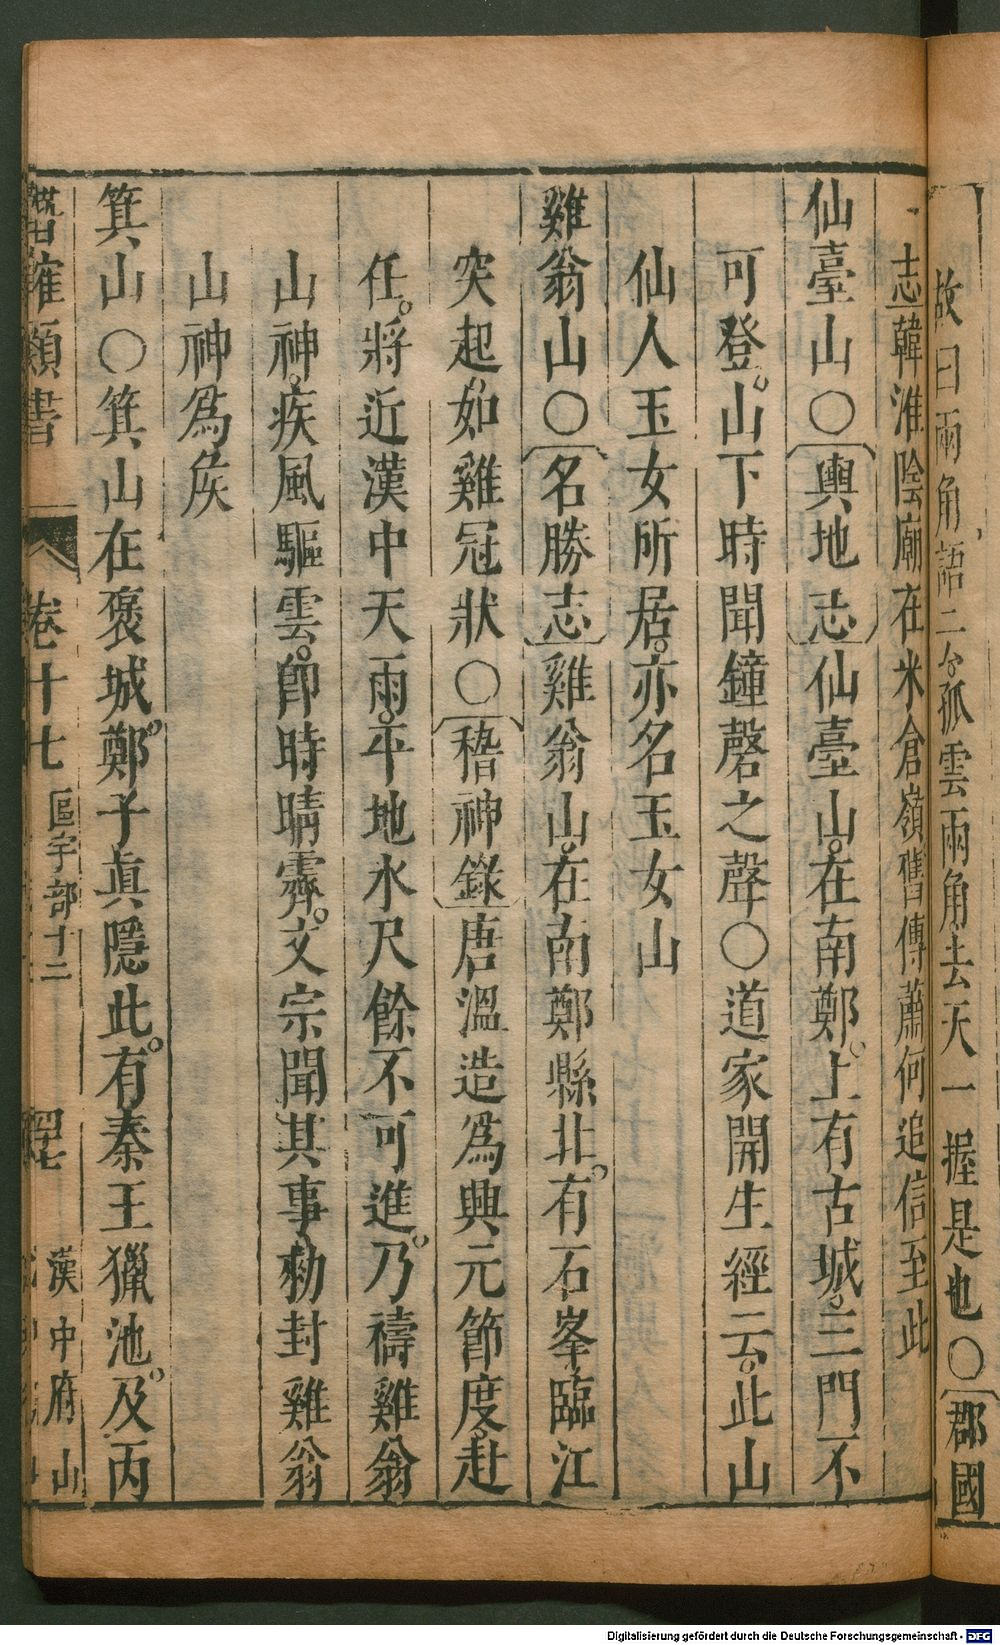 故曰兩角語云孤雲兩角去天一握是也○郡國
志韓淮陰廟在米倉嶺舊傳蕭何追信至此
仙臺山○輿地志仙臺山在南鄭上有古城三門不
可登山下時聞鐘磬之聲○道家開生經云此山
仙人玉女所居亦名玉女山
雞翁山○名勝志雞翁山在南鄭縣北有石峯臨江
突起如雞冠狀○稽神錄唐溫造爲興元節度赴
任將近漢中天雨平地水尺餘不可進乃禱雞翁
山神疾風驅雲卽時晴霽文宗聞其事勑封雞翁
山神爲矦
箕山○箕山在褒城鄭子眞隱此有秦王獵池及丙
潛確類書 卷十七 區宇部十二 漢中府山
Digitalisierung gefördert durch die Deutsche Forschungsgemeinschaft - DFG